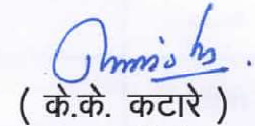 ( के.के. कटारे )